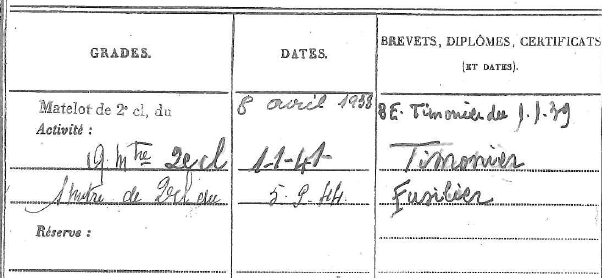 GRADES.
DATES.
BREVETS, DIPLÔMES, CERTIFICATS
(ET DATES).
Matelot de 2e cl, du 8 avril 1938 BE. Timonier du 1.1.39
Activité :
Q. Mtre 2e cl 1-1-41 Timonier
Mtre de 2e cl du 5.9.44. Fusilier
Réserve :